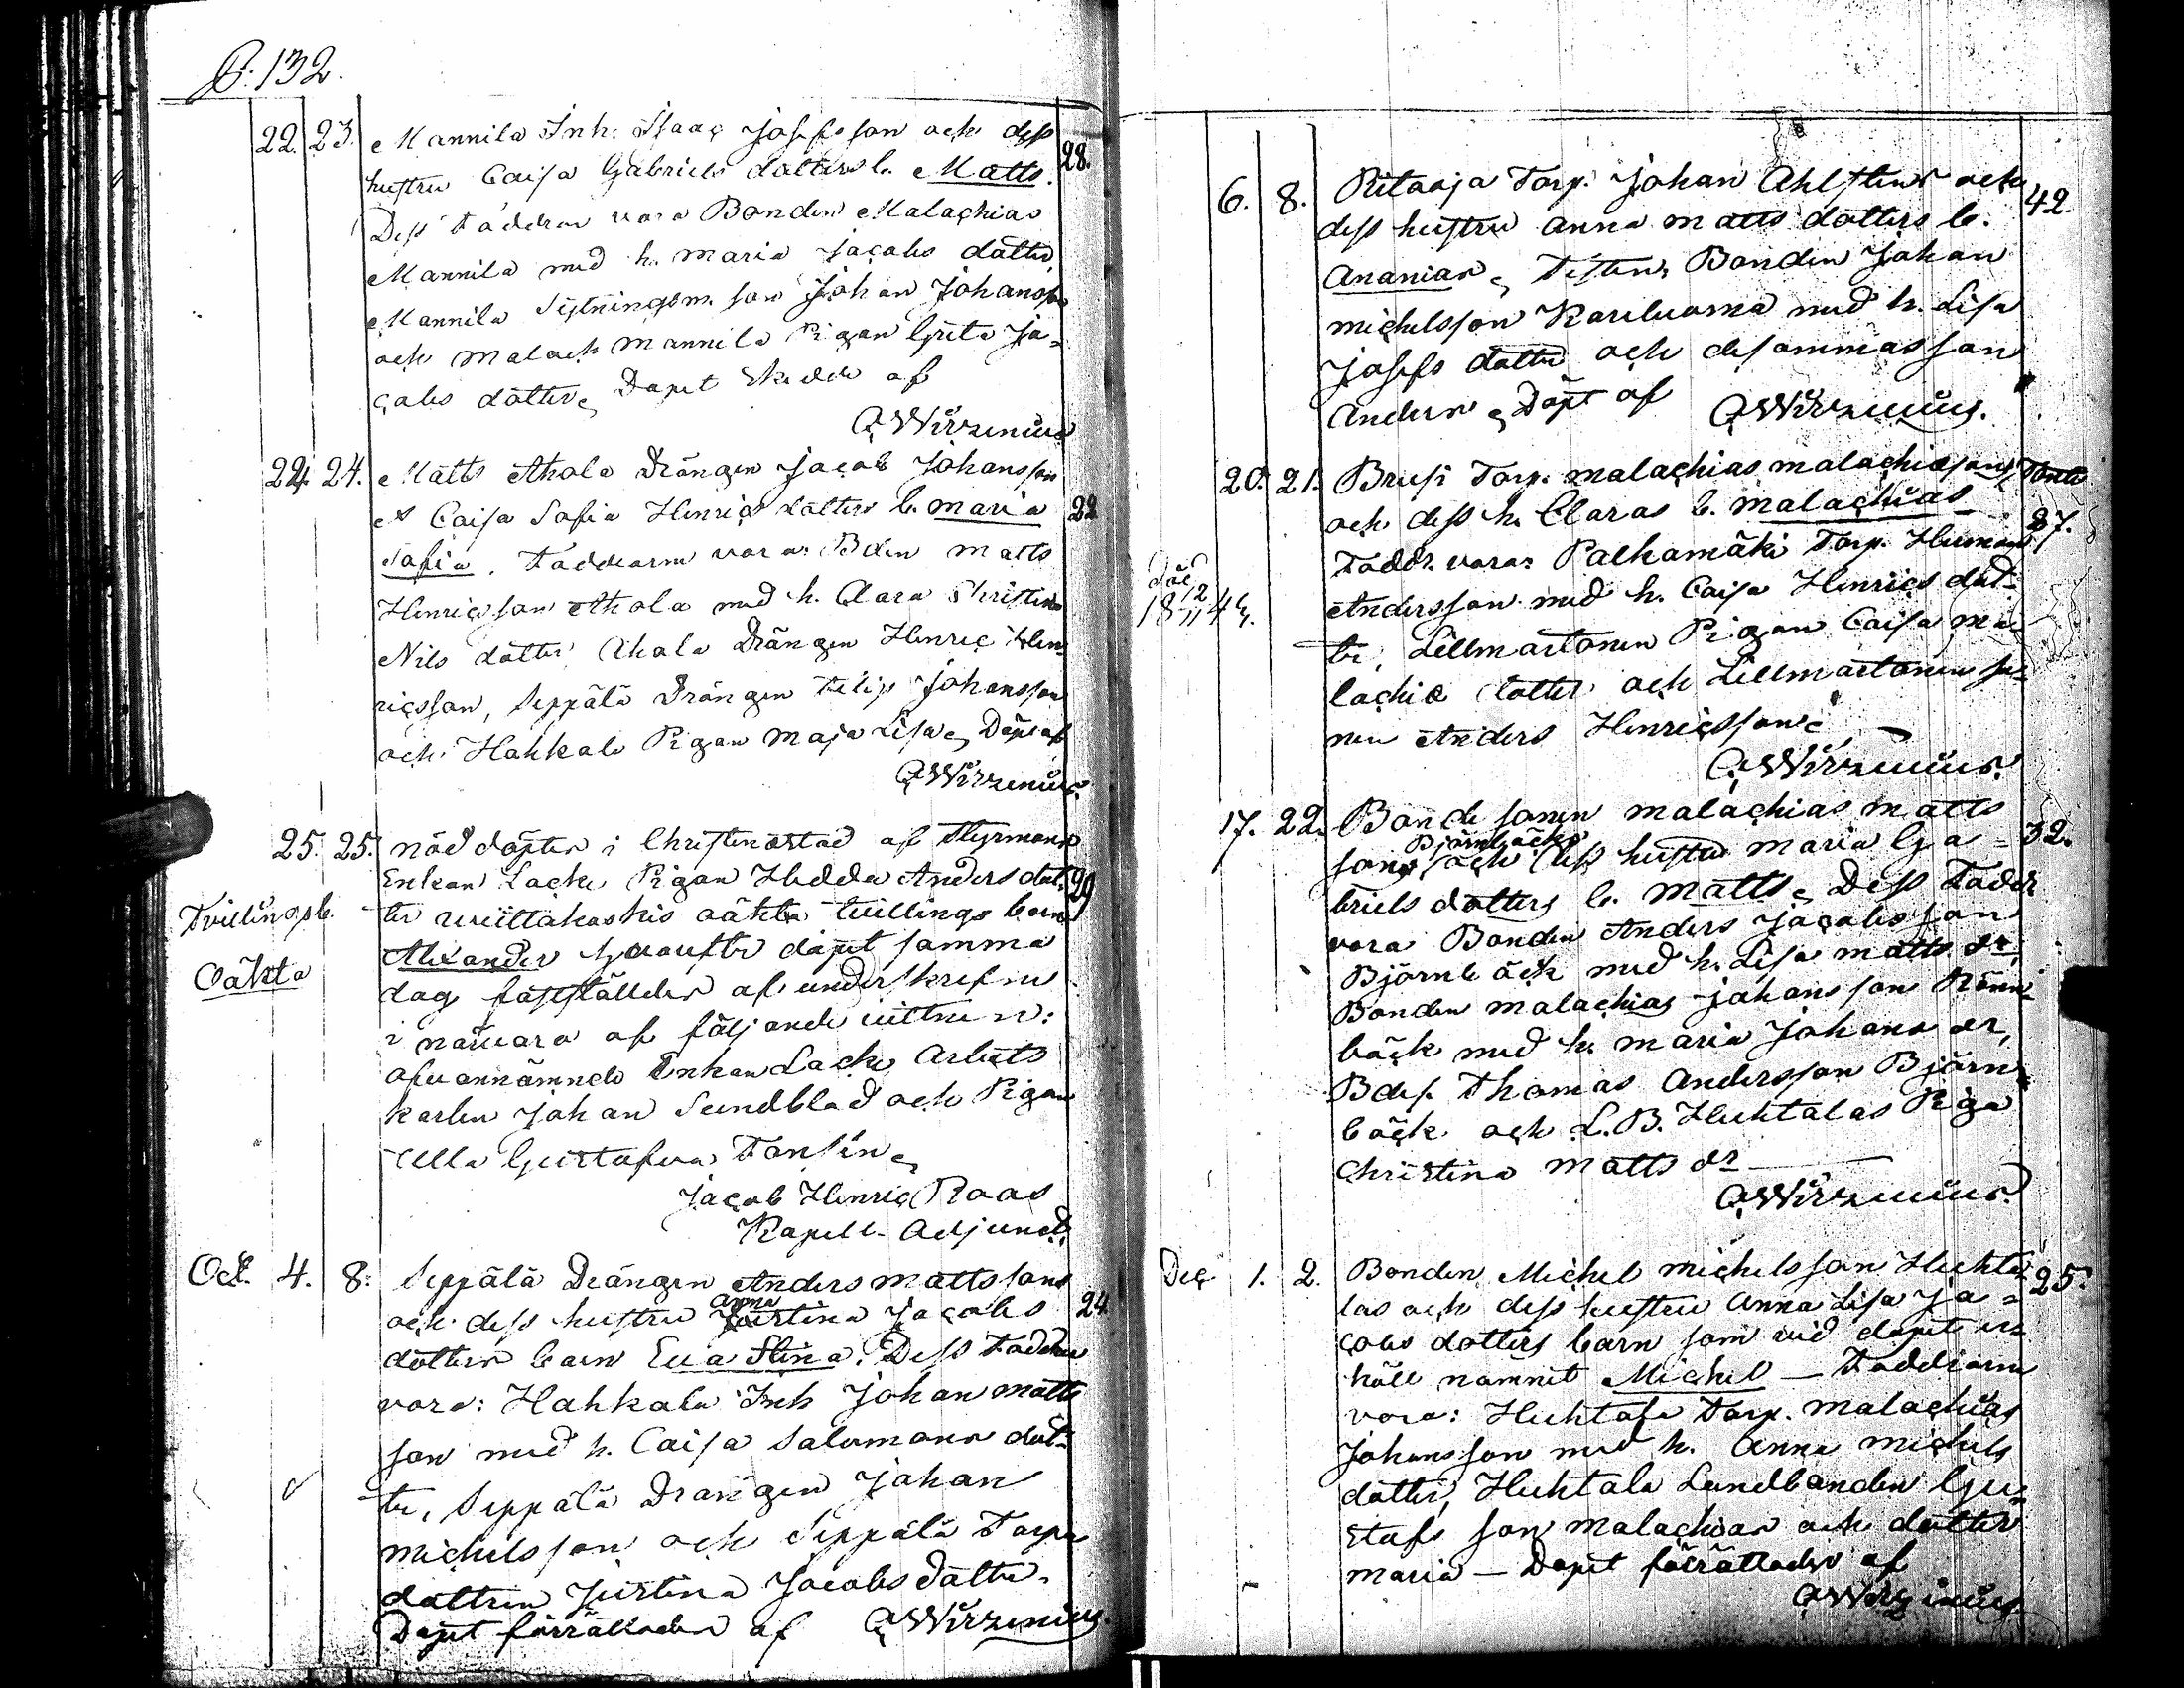 P. 132.
22. 23. Mannila Inh. Isaac Josefsson och dess
hustru Caisa Gabriels dotters b. Matts. 28.
Dess Faddrar voro Bonden Malachias
Mannila med h. Maria Jacobs dotter,
Mannila Sytningsm. son Johan Johansson
och Malach Mannila Pigan Greta Ja=
cobs dotter, Dopet skedde af
CWirzenius
22. 24. Matts Ahola Drängen Jacob Johansson
et Caisa Sofia Henrics dotters b. Maria 22
Sofia. Faddrarne voro: Bden Matts
Henricsson Ahola med h. Clara Christina
Nils dotter, Ahola Drängen Henric Hen=
ricsson, Seppälä Drängen Filip Johansson
och Hahkala Pigan Maja Lisa, Döpt af
CWirzenius.
25. 25. Nöd döptes i Christinestad af Styrmans
Enkan Lack Pigan Hedda Anders dot= 29
Tvillingsb. ter Wiittakoskis oäkta tvillings barn
Alexander hvarefter dopet samma
Oäkta
dag fastställdes af underskrefne
i närvaro af följande vittnen:
ofvannämnde Enkan Lack, Arbets
karlen Johan Sundblad och Pigan
Ulla Gustafva Forsin,
Jacob Henric Roos
Kapell. Adjunct.
Oct. 4. 8. Seppälä Drängen Anders Mattssons
Anna
och dess hustru Justina Jacobs 24
dotters barn Eva Stina. Dess Faddrar
voro: Hahkala Inh Johan Matts
son med h. Caisa Salomons dot=
ter, Seppälä Drängen Johan
Michelsson och Seppälä Torpar
dottren Justina Jacobs dotter.
Dopet förrättades af CWirzenius.
6. 8. Ritaoja Torp. Johan Ahlstens och 42.
dess hustru Anna Matts dotters b.
Ananias, Testen, Bonden Johan
Michelsson Kariluoma med h. Lisa
Josefs dotter och desammas son
Anders, Döpt af CWirzenius.
20. 21. Brusi Torp. Malachias Malachiasons
och dess h. Claras b. Malachias 27.
Faddr. voro: Palkamäki Torp. Herman
död 18 12/11 44.
Andersson med h. Caisa Henrics dot=
ter, Lillmartonen Pigan Caisa Ma
lachie dotter och Lillmartonen so=
nen Anders Henricsson
CWirzenius.
17. 22. Bonde sonen Malachias Matts
Björnbäcks
sons och dess hustru Maria Ga= 32.
briels dotters b. Matts, Dess Faddr
voro Bonden Anders Jacobsson
Björnbäck med h. Lisa Matts dr,
Bonden Malachias Johansson Rönn=
bäck med h. Maria Johans dr,
Bdes. Thomas Andersson Björn=
bäck och L.B. Huhtalas Piga
Christina Matts dr
CWirzenius.
Dec. 1. 2. Bonden Michel Michelsson Huhta= 25.
las och dess hustru Anna Lisa Ja=
cobs dotters barn som vid dopet er=
höll namnet Michel — Faddrarne
voro: Huhtala Torp. Malachias
Johansson med h. Anna Michels
dotter, Huhtala Landbonden Gu=
stafs son Malachias och dotter
Maria — Dopet förrättades af
CWirzenius.